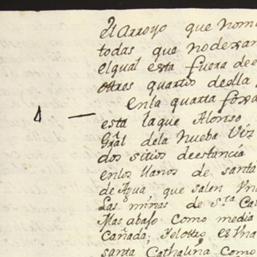 el Arroyo que nom
todas que no dexan
el qual esta fuera de e
ottros quartto de olla
en la quarta foxa
esta la que Alonso
Gral dela Nueba Viz
dos sitios de estancia
en los llanos de santa
de Agua que salen Vn
Las minas de sta Cat
Mas abajo Como media
Cañada; ielotto es Vna
santa Cathalina Como